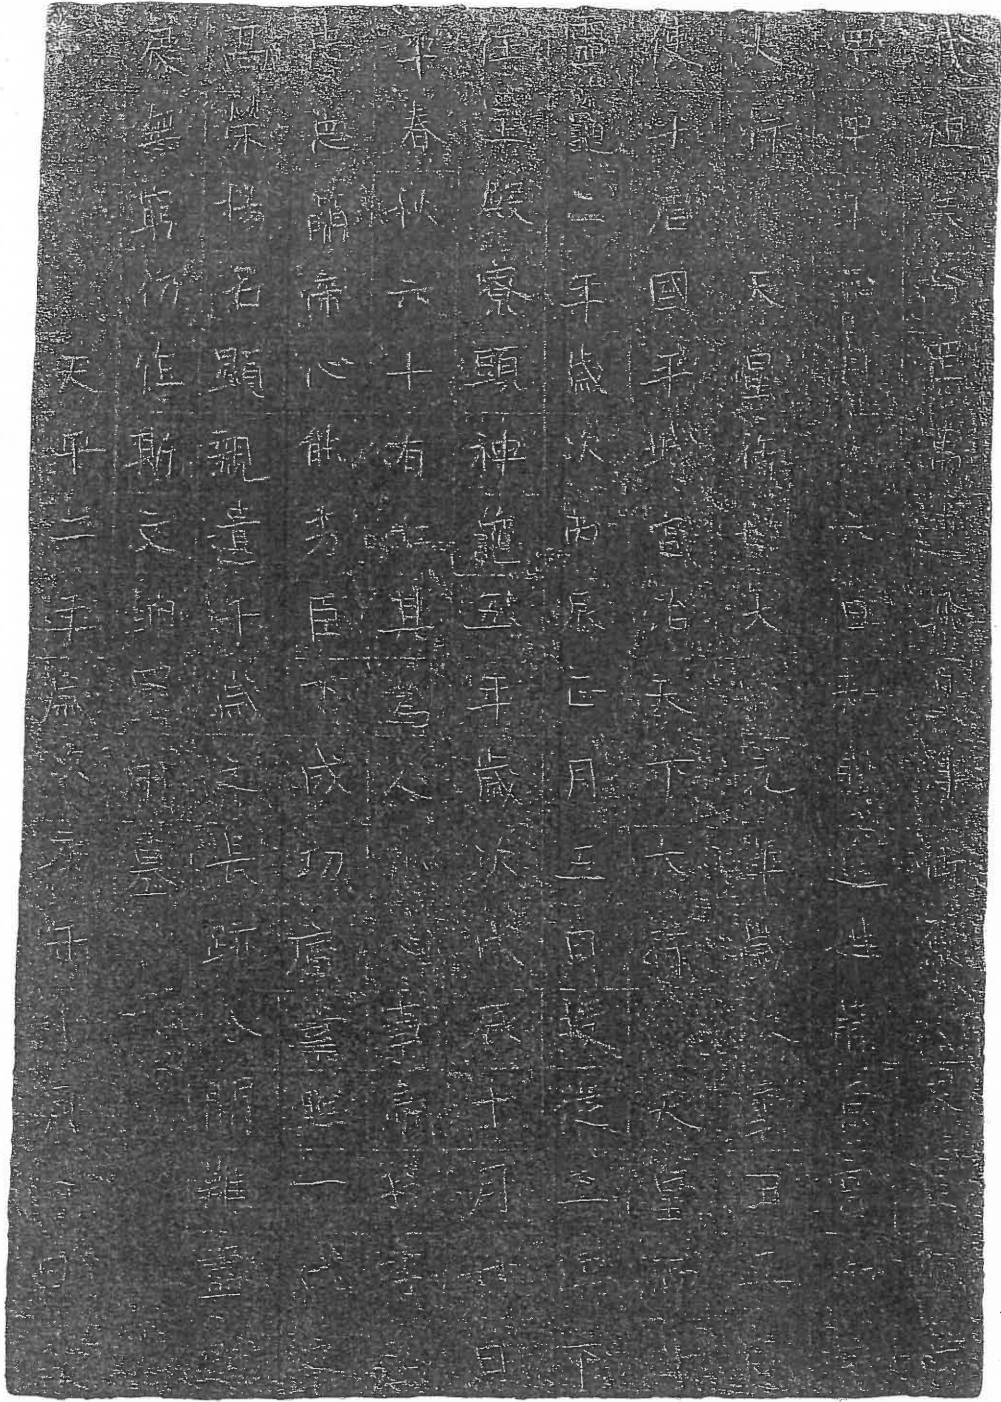 祖美岡萬連飛鳥浄原天
甲申年正月六日勅賜連姓藤原宮
大行天皇御世大寶元年歳次辛丑五月
使乎唐國平城宮治天下大行天皇御
靈龜二年歳次丙辰正月五日授從五位下
任主殿寮頭神龜五年歳次戊辰十月廿日
卒春秋六十有七其為人小心事帝移孝為
忠忠簡帝心能秀臣下成功廣業照一代之
高榮揚名顯親遺千歳之長跡令聞難盡
慶無窮仍作斯文納置墓
天平二年歳次庚午十月日